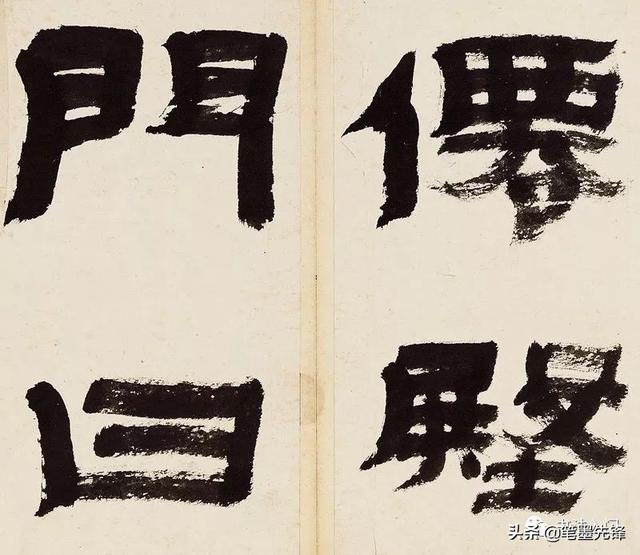 僊壂
門曰
头条 @笔墨先锋